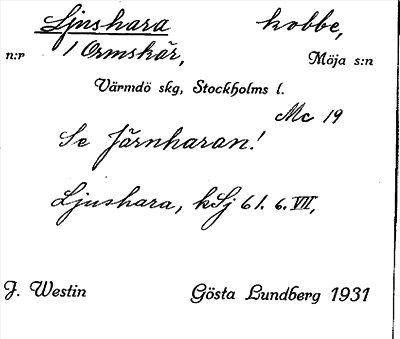 Ljushara kobbe,
n:r / Ormskär, Möja s:n
Värmdö skg, Stockholms l.
Mc 19
Se Järnharan!
Ljushara, kSj 61. 6. VII,
J. Westin Gösta Lundberg 1931